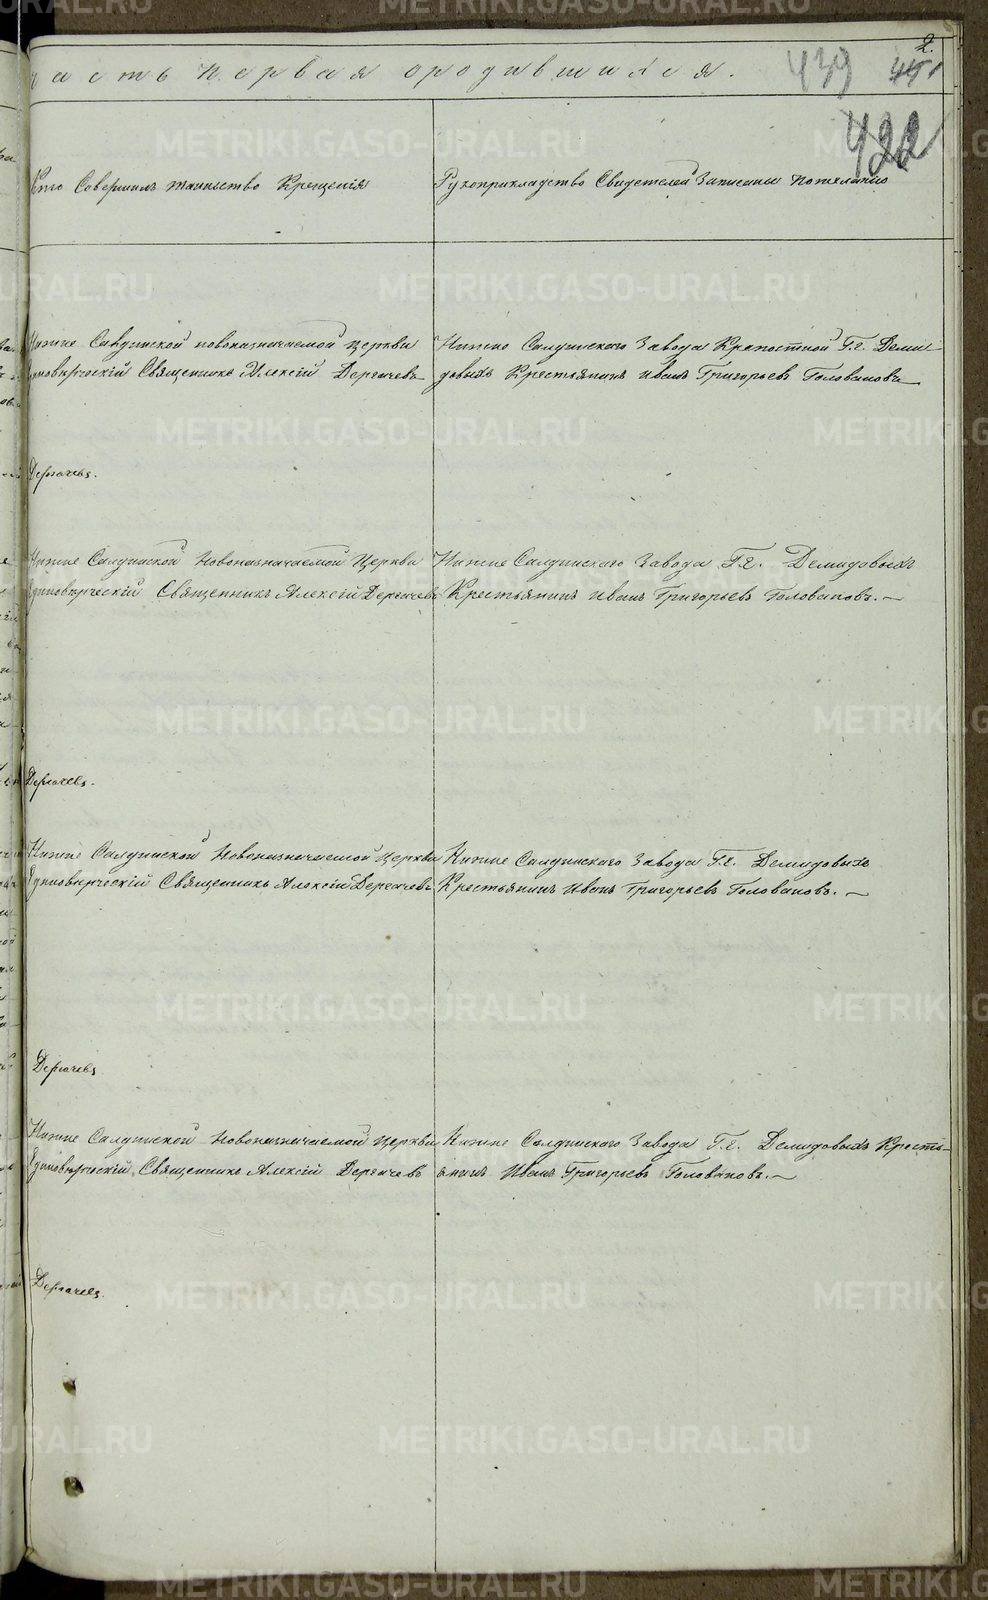 2.
часть первая о родившихся.
439
422
Кто Совершилъ таинство Крещенія
Рукоприкладство Свидетелей Записаны по желанію
Нижне Салдинской новоназначаемой церкви
Единоверческій Священникъ Алексій Дергачевъ
Нижне Салдинскаго Завода Крепостной Г.г. Деми-
довыхъ Крестьянинъ Иванъ Григорьевъ Головановъ
Дергачевъ.
Нижне Салдинской Новоназначаемой Церкви
Единоверческій Священникъ Алексій Дергачевъ
Нижне Салдинскаго Завода Г.г. Демидовыхъ
Крестьянинъ Иванъ Григорьевъ Головановъ.
Дергачевъ.
Нижне Салдинской Новоназначаемой Церкви
Единоверческій Священникъ Алексій Дергачевъ
Нижне Салдинскаго Завода Г.г. Демидовыхъ
Крестьянинъ Иванъ Григорьевъ Головановъ.
Дергачевъ
Нижне Салдинской Новоназначаемой Церкви
Единоверческій Священникъ Алексій Дергачевъ
Нижне Салдинскаго Завода Г.г. Демидовыхъ Кресть-
янинъ Иванъ Григорьевъ Головановъ.
Дергачевъ.
METRIKI.GASO-URAL.RU